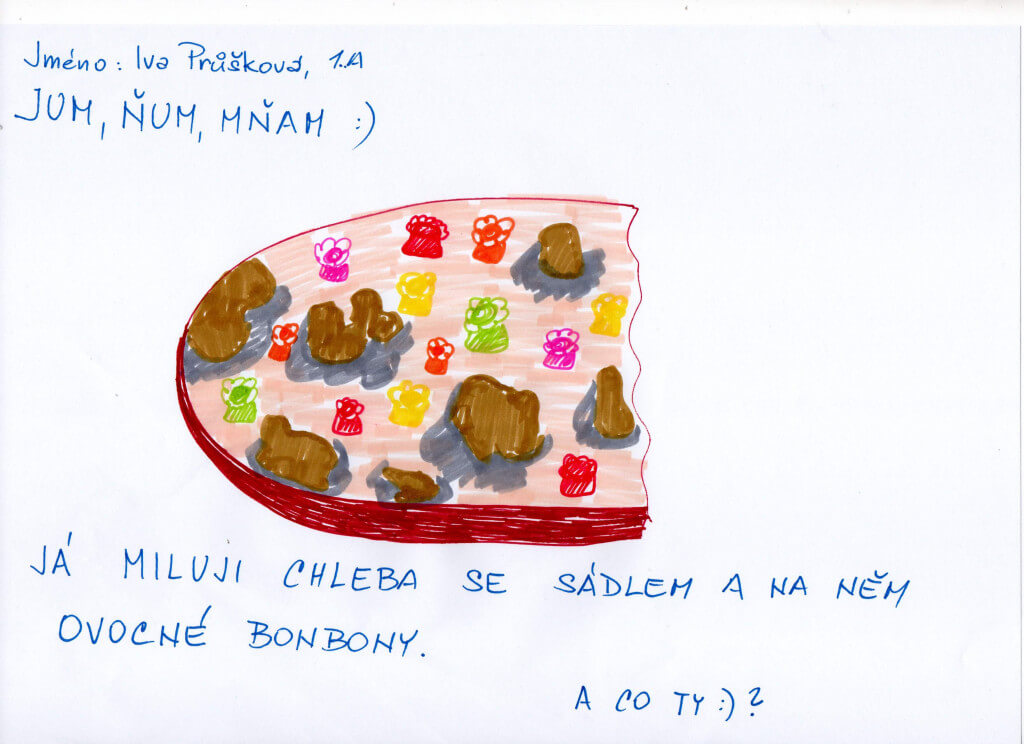 Jméno: Iva Průšková, 1.A
JUM, ŇUM, MŇAM :)
JÁ MILUJI CHLEBA SE SÁDLEM A NA NĚM
OVOCNÉ BONBONY.
A CO TY :) ?